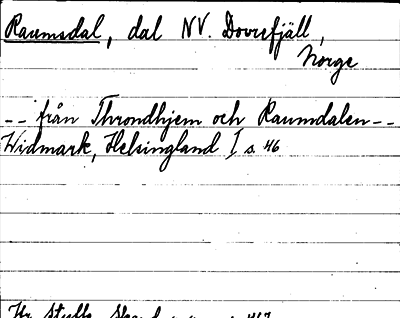 Raumsdal, dal NV Dovrefjäll,
Norge
-- från Throndhjem och Raumdalen --
Widmark, Helsingland I s. 46